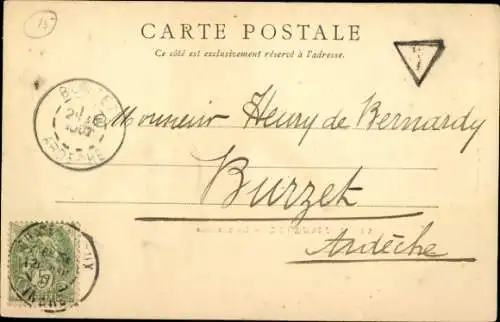 15
CARTE POSTALE
Ce côté est exclusivement réservé à l'adresse.
T
BURZET
ARDÈCHE
Monsieur Henry de Bernardy
Burzet
Ardèche